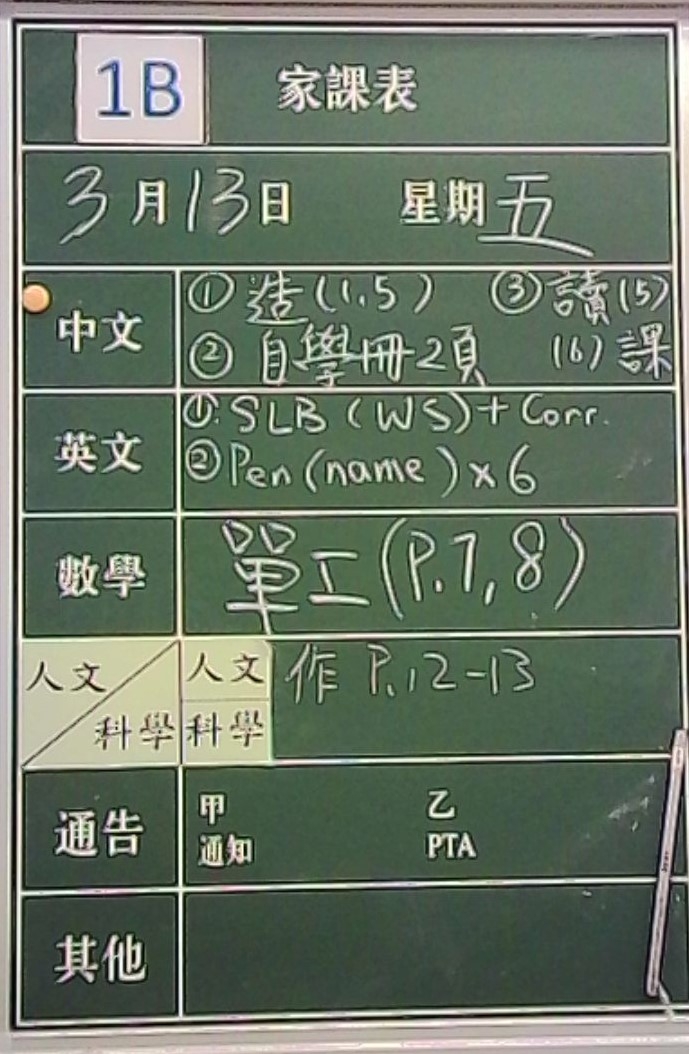 1B 家課表
3月13日 星期五
中文 ①造(1,5) ③讀(5)
②自學冊2頁 (6)課
英文 ①SLB (WS)+Corr.
②Pen(name)x6
數學 單工(P.7,8)
人文 人文 作 P.12-13
科學 科學
通告 甲 乙
通知 PTA
其他